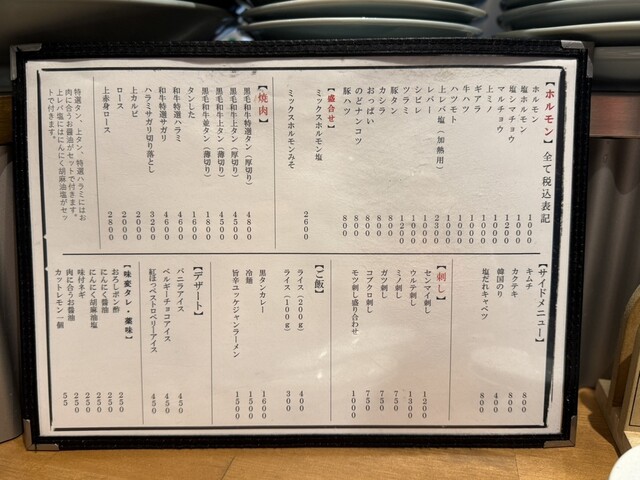 【ホルモン】全て税込表記
ホルモン 1000
塩ホルモン 1000
塩シマチョウ 1200
マルチョウ 1000
上ミノ
ギアラ 1000
牛ハツ 1000
ハツモト 1000
上レバ塩（加熱用） 2300
レバー 1000
シビレ
ツラミ 1200
豚タン 800
カシラ 800
おっぱい 800
のどナンコツ 800
豚ハツ 800
【盛合せ】
ミックスホルモン塩
ミックスホルモンみそ 2600
【焼肉】
黒毛和牛特選タン（厚切り） 4800
黒毛和牛上タン（厚切り） 4500
黒毛和牛上タン（薄切り） 4500
黒毛和牛並タン（薄切り） 1800
タンした 1600
和牛特選ハラミ 4600
和牛特選サガリ 4600
ハラミサガリ切り落とし 3200
上カルビ 2000
ロース 2000
上赤身ロース 2800
特選タン、上タン、特選ハラミにはお
肉に合うお醤油がセットで付きます。
上レバ塩にはにんにく胡麻油塩がセッ
トで付きます。
【サイドメニュー】
キムチ 800
カクテキ 800
韓国のり 400
塩だれキャベツ 800
【刺し】
センマイ刺し 1200
ウルテ刺し 1300
ミノ刺し 750
ガツ刺し 750
コブクロ刺し 750
モツ刺し盛り合わせ 1000
【ご飯】
ライス（200g） 400
ライス（100g） 300
黒タンカレー 1600
冷麺 1500
旨辛ユッケジャンラーメン 1500
【デザート】
バニラアイス 450
ベルギーチョコアイス 450
紅ほっぺストロベリーアイス 450
【味変タレ・薬味】
おろしポン酢 250
にんにく醤油 250
にんにく胡麻油塩 250
味付ネギ 250
肉に合うお醤油 250
カットレモン一個 55